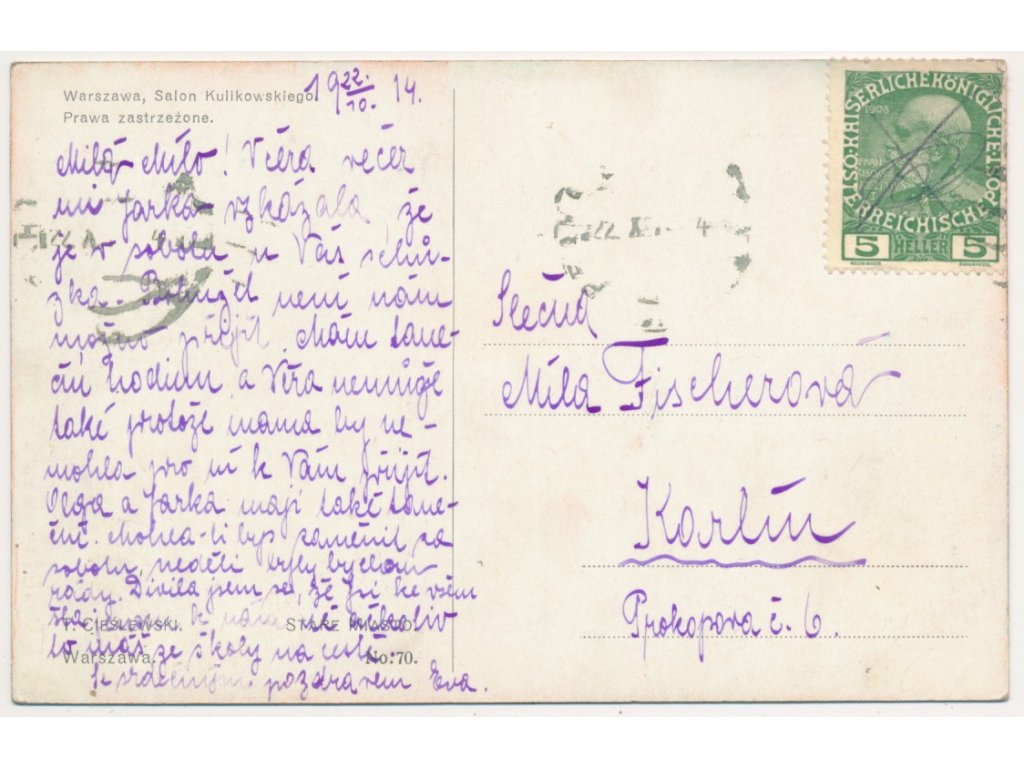 Warszawa, Salon Kulikowskiego.
Prawa zastrzeżone.
19 22./10. 14.
Milá Mílo! Včera večer
mi Jarka vzkázala, že
je v sobotu u Vás schů-
zka. Bohužel není nám
možno přijít. Mám tane-
ční hodinu a Věra nemůže
také protože mama by ne-
mohla pro ní k Vám přijít.
Olga a Jarka mají také tane-
ční. Mohla-li bys zaměnit za
sobotu, neděli byly bychom
rády. Divila jsem se, že jsi ke všem
šla k nám ne ačkoliv
to máš ze školy na cestě.
Se srdečným pozdravem Eva.
T. CIEŚLEWSKI. STARE MIASTO.
Warszawa. No: 70.
KAISERLICHE KÖNIGLICHE
ÖSTERREICHISCHE POST
1908
FRAN
CISC
JOSEF
5 HELLER 5
22. X. 4
Slečna
Míla Fischerová
Karlín
Prokopova č. 6.